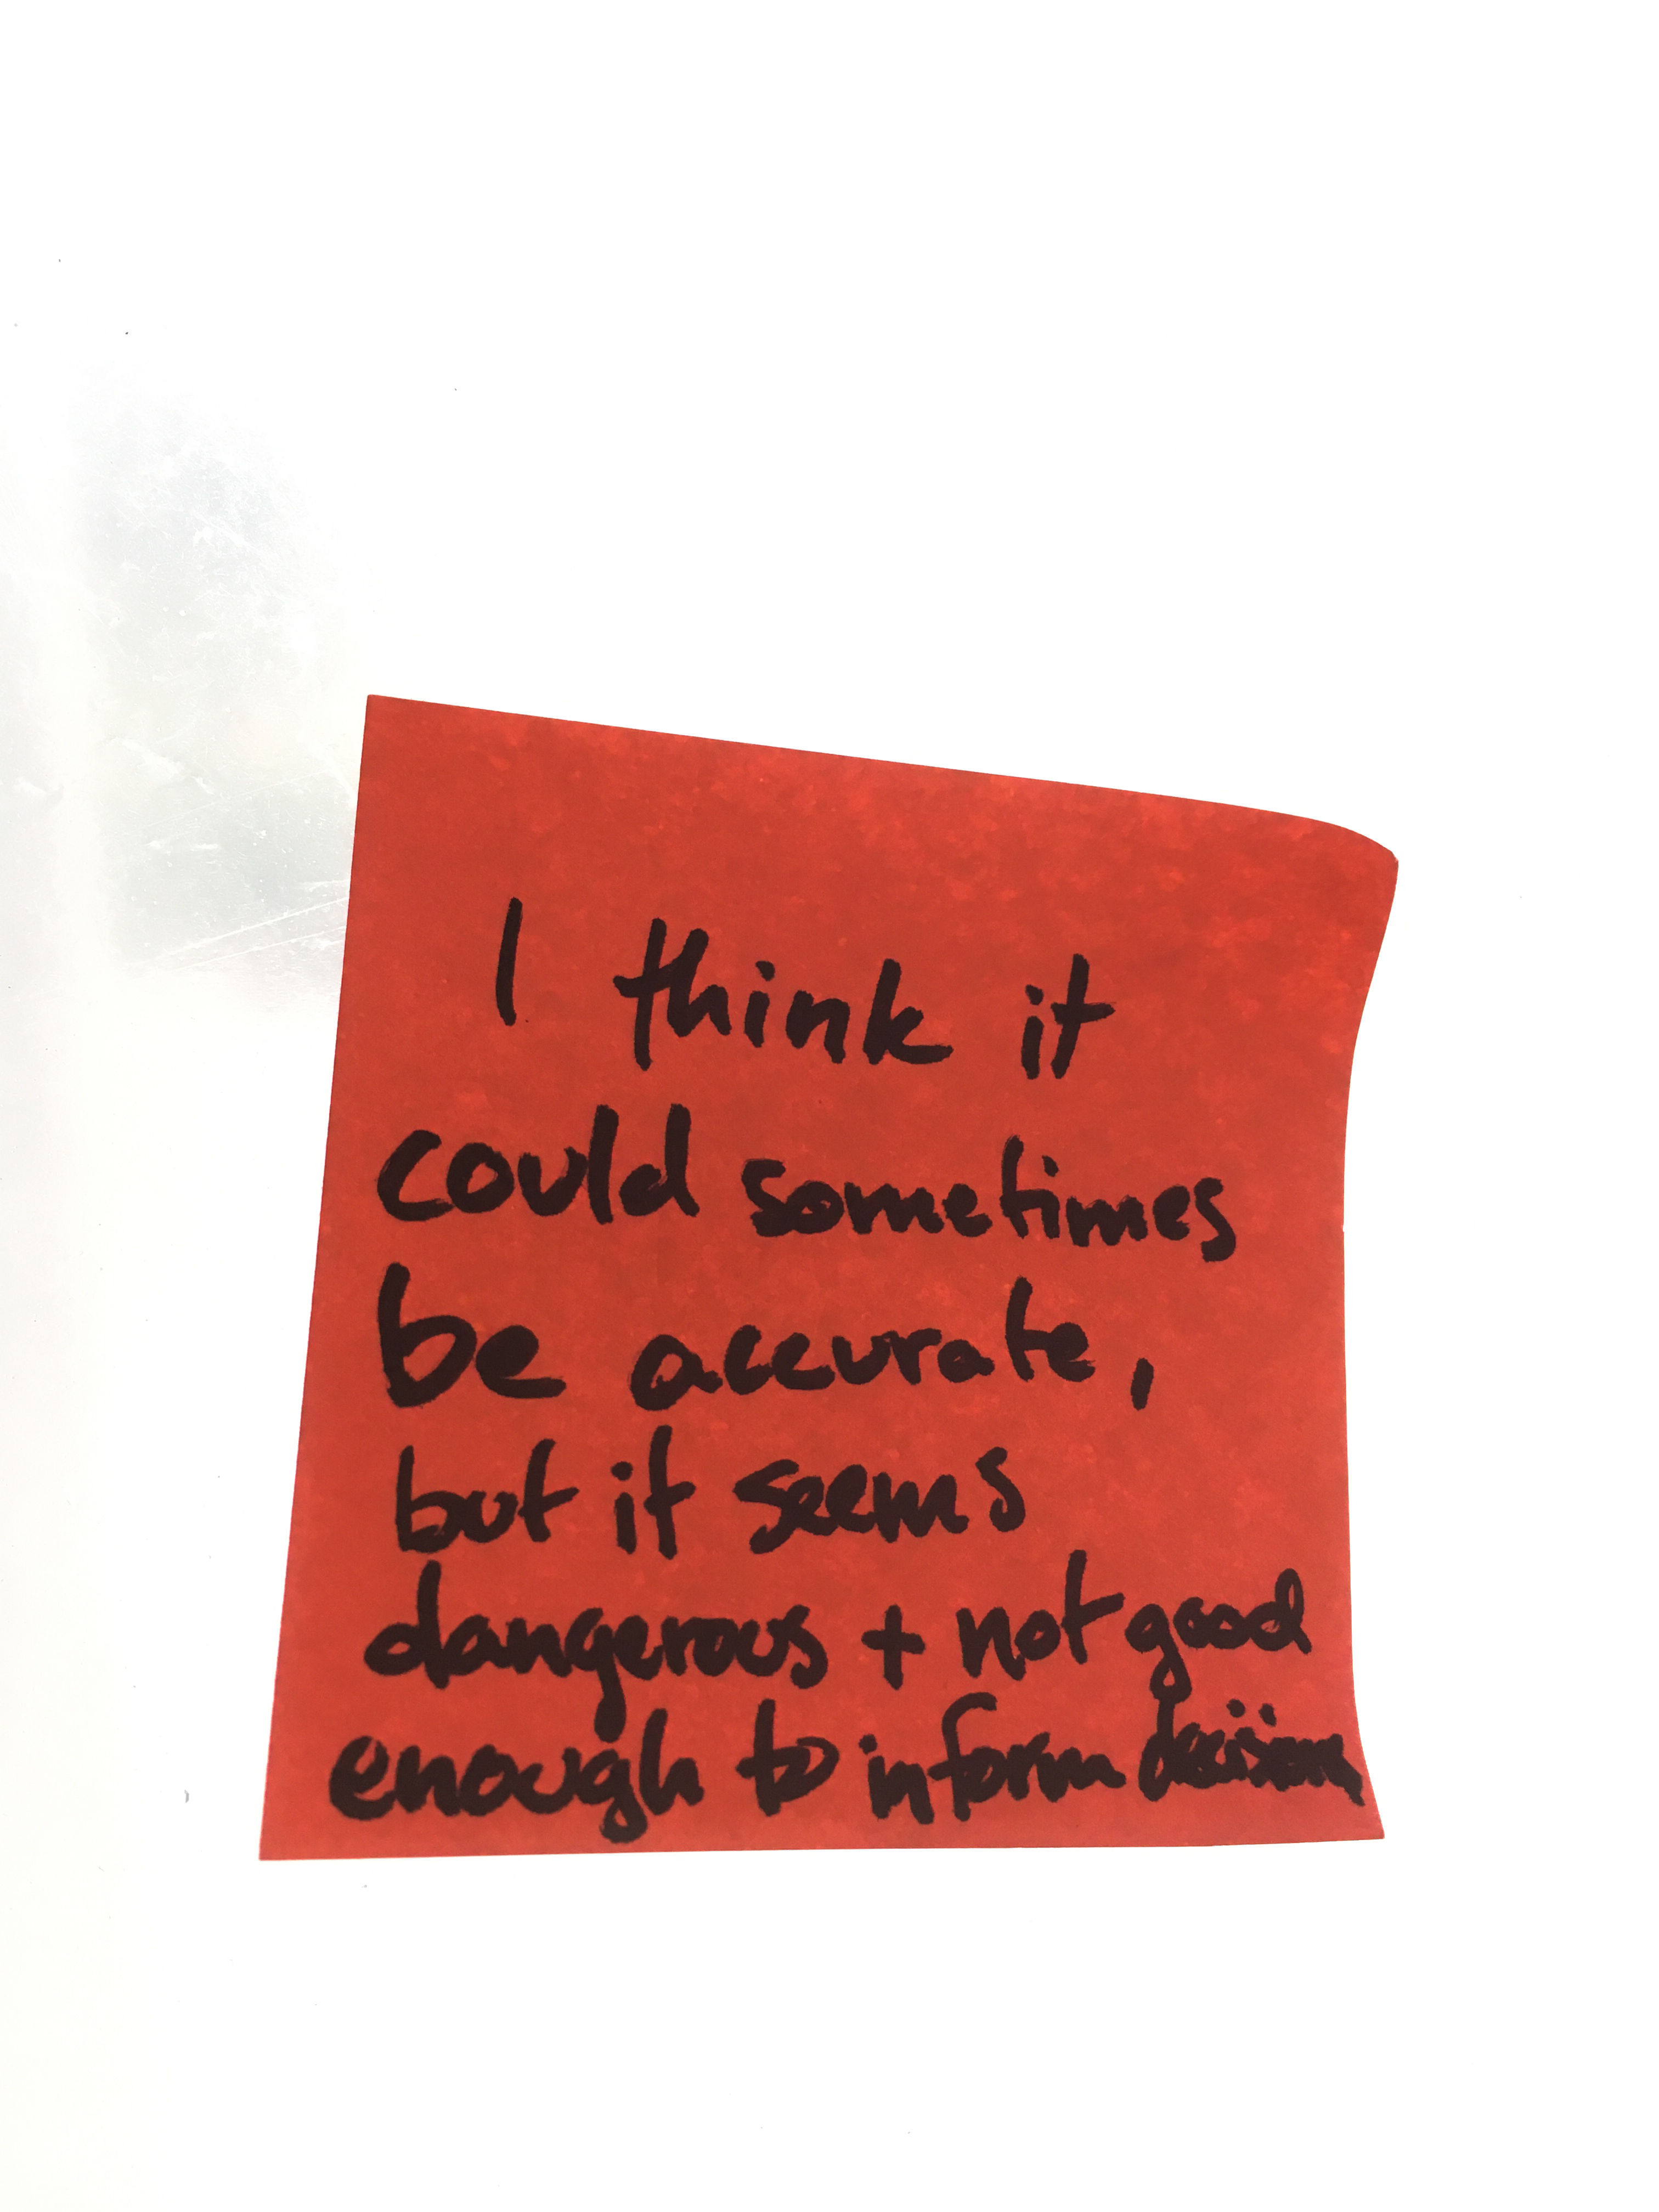 I think it
could sometimes
be accurate,
but it seems
dangerous + not good
enough to inform decisions